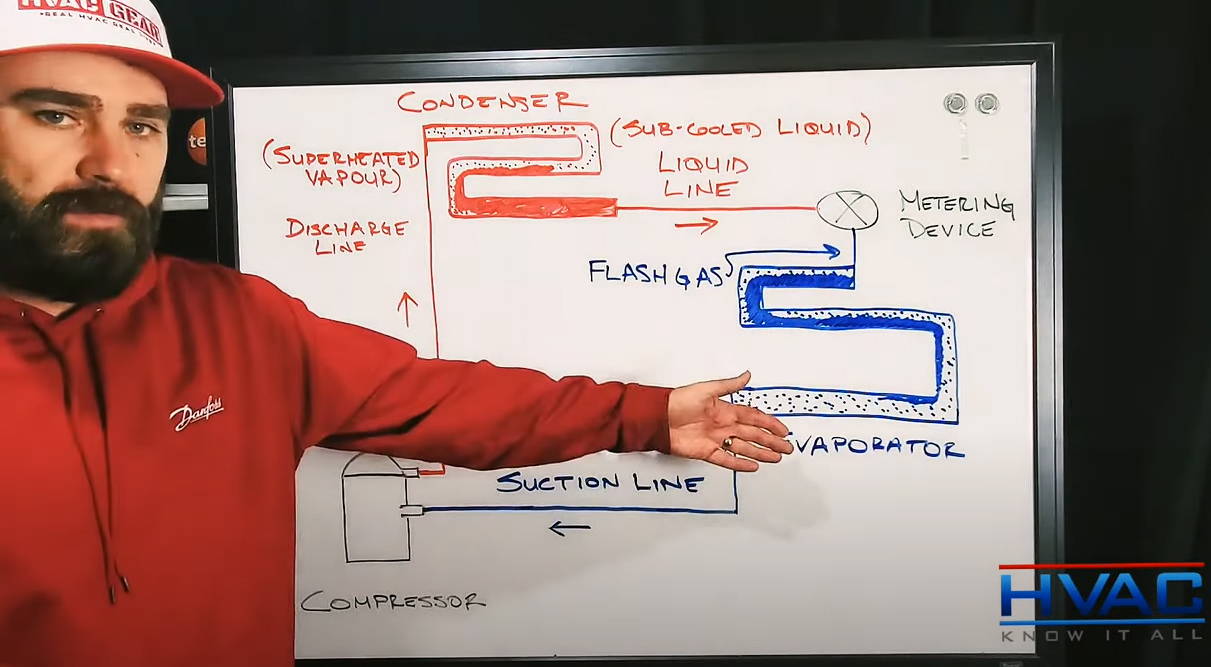 HVAC GEAR
REAL HVAC GEAR
te
CONDENSER
(SUPERHEATED
VAPOUR)
(SUB-COOLED LIQUID)
LIQUID
LINE
DISCHARGE
LINE
METERING
DEVICE
FLASH GAS
Danfoss
VAPORATOR
SUCTION LINE
COMPRESSOR
HVAC
KNOW IT ALL